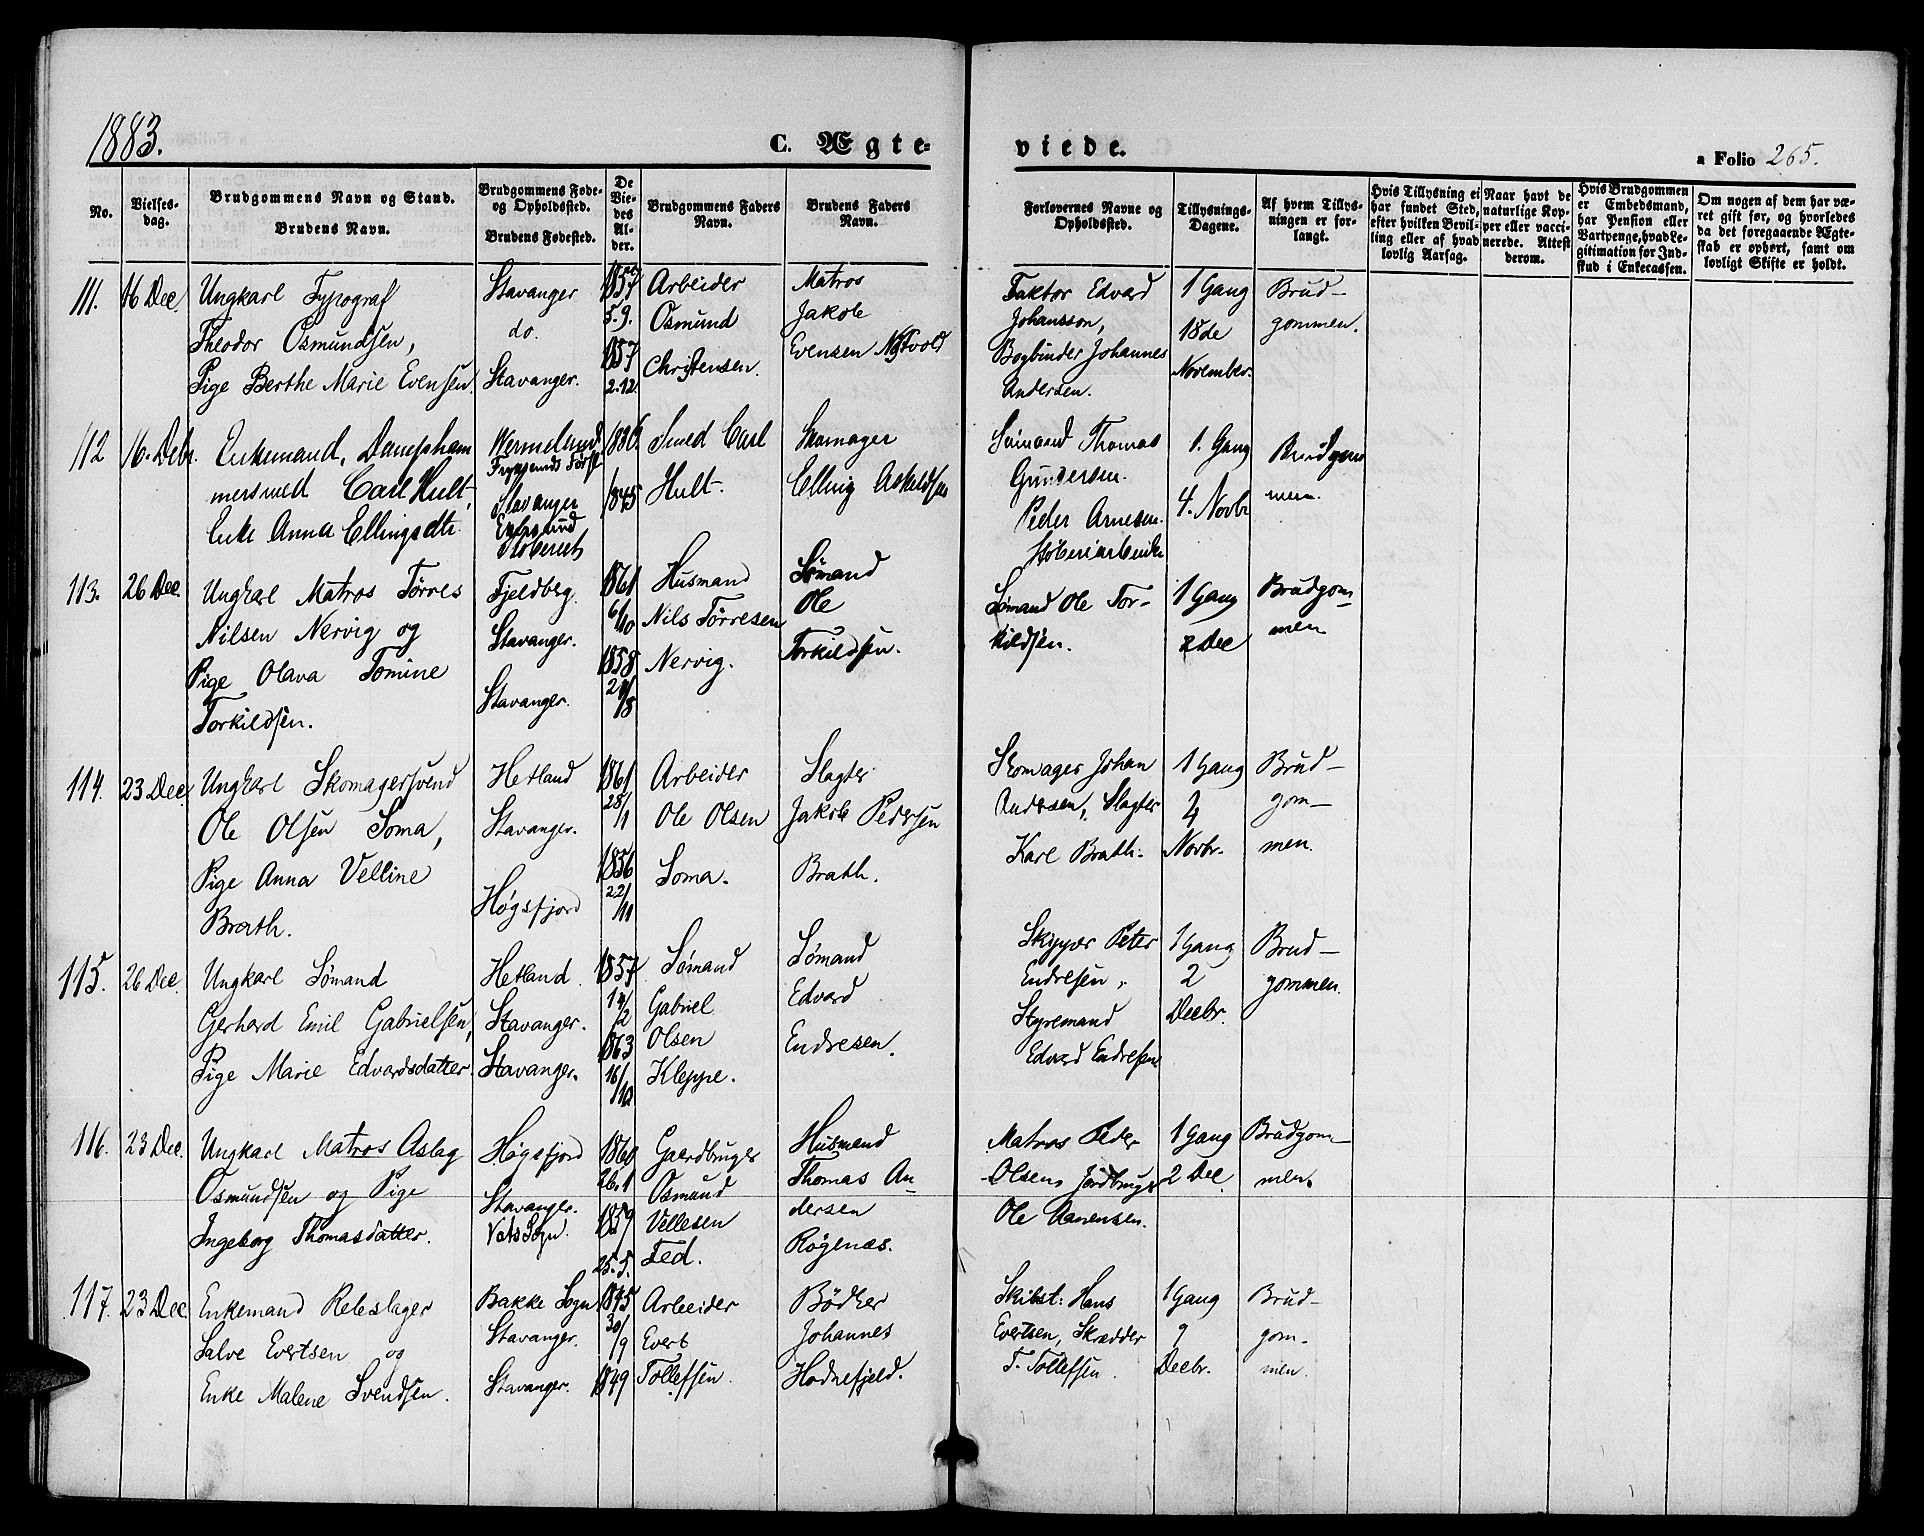 1883.
C. Ægte-
viede.
a Folio 265.
No.
Vielses-
dag.
Brudgommens Navn og Stand.
Brudens Navn.
Brudgommens Føde-
og Opholdssted.
Brudens Fødested.
De
Vie-
des
Al-
der.
Brudgommens Faders
Navn.
Brudens Faders
Navn.
Forlovernes Navne og
Opholdssted.
Tillysnings-
Dagene.
Af hvem Tillys-
ningen er for-
langt.
Hvis Tillysning ei
har fundet Sted,
efter hvilken Bevil-
ling eller af hvad
lovlig Aarsag.
Naar havt de
naturlige Kop-
per eller vacci-
nerede. Attest
derom.
Hvis Brudgommen
er Embedsmand,
har Pension eller
Vartpenge, hvad Le-
gitimation for Ind-
skud i Enkecassen.
Om nogen af dem har væ-
ret gift før, og hvorledes
da det foregaaende Ægte-
skab er ophørt, samt om
lovligt Skifte er holdt.
111.
16 Dec.
Ungkarl Typograf
Theodor Osmundsen,
Pige Berthe Marie Evensen.
Stavanger
do.
Stavanger.
1857
3.9.
1857
2.12.
Arbeider
Osmund
Christensen.
Matros
Jakob
Evensen
Faktor Edvard
Johansson,
Bogbinder Johannes
Andersen.
1 Gang
18de
November.
Brud-
gommen.
112
16. Debr.
Enkemand, Dampham
mersmed Carl Hult,
Enke Anna Ellingsdtr
Wermeland
Stavanger
1845
Smed Carl
Hult.
Skomager
Elling Askildsen
Sømand Thomas
Gundersen.
Peder Arnesen.
Støberiarbeider
1. Gang
4. Novbr
Brudgom
men.
113.
26 Dec.
Ungkarl Matros Tørres
Nilsen Nervig og
Pige Olava Tomine
Torkildsen.
Fjeldberg.
Stavanger.
Stavanger.
1861
6/10
1858
Husmand
Nils Tørresen
Nervig.
Sømand
Ole
Torkildsen.
Sømand Ole Tor-
kildsen.
1 Gang
2 Dec
Brudgom-
men
114.
23 Dec.
Ungkarl Skomagersvend
Ole Olsen Soma,
Pige Anna Velline
Brath.
Hetland
Stavanger.
Høgsfjord
1861
28/1
1856
22/11
Arbeider
Ole Olsen
Soma.
Slagter
Jakob Pedersen
Brath.
Skomager Johan
Andersen, Slagter
Karl Brath.
1 Gang
4
Novbr.
Brud-
gom-
men.
115.
26 Dec.
Ungkarl Sømand
Gerhard Emil Gabrielsen,
Pige Marie Edvardsdatter.
Hetland.
Stavanger.
Stavanger.
1857
14/2
1863
16/12
Sømand
Gabriel
Olsen
Kleppe.
Sømand
Edvard
Endresen.
Skipper Peter
Endresen,
Styrmand
Edvard Endresen
1 Gang
2
Decbr.
Brud-
gommen.
116.
23 Dec.
Ungkarl Matros Aslag
Osmundsen og Pige
Ingeborg Thomasdatter.
Høgsfjord
Stavanger.
Nats Sogn.
1860
26.1
1859
25.5.
Gaardbruger
Osmund
Vellesen
Husmand
Thomas An-
dersen
Røgenæs.
Matros Peder
Olsen, Jordbruger
Ole Aanensen.
1 Gang
2 Dec.
Brudgom-
men.
117.
23 Dec.
Enkemand Rebslager
Salve Evertsen og
Enke Malene Svendsen.
Bakke Sogn
Stavanger.
Stavanger.
1845
30/9
1849
Arbeider
Evert
Tollefsen.
Bødker
Johannes
Hodnefjeld.
Skibst: Hans
Evertsen, Skrædder
T. Tollefsen.
1 Gang
9
Decbr.
Brud-
gom-
men.